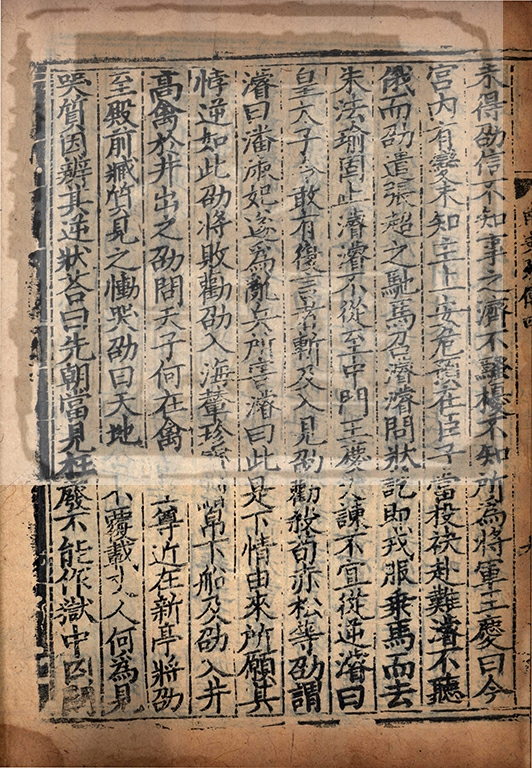 未得劭信不知事之濟不騷擾不知所為將軍王慶曰今
宮內有變未知主上安危預在臣子當投袂赴難濬不聽
俄而劭遣張超之馳馬召濬濬問狀訖即戎服乘馬而去
朱法瑜固止濬濬不從至中門王慶又諫不宜從逆濬曰
皇太子令敢有復言者斬及入見劭勸殺荀赤松等劭謂
濬曰潘淑妃遂爲亂兵所害濬曰此是下情由來所願其
悖逆如此劭將敗勸劭入海輦珍寶繒帛下船及劭入井
高禽於井出之劭問天子何在禽至尊近在新亭將劭
至殿前臧質見之慟哭劭曰天地不覆載丈人何為見
哭質因辨其逆狀荅曰先朝當見枉廢不能作獄中囚